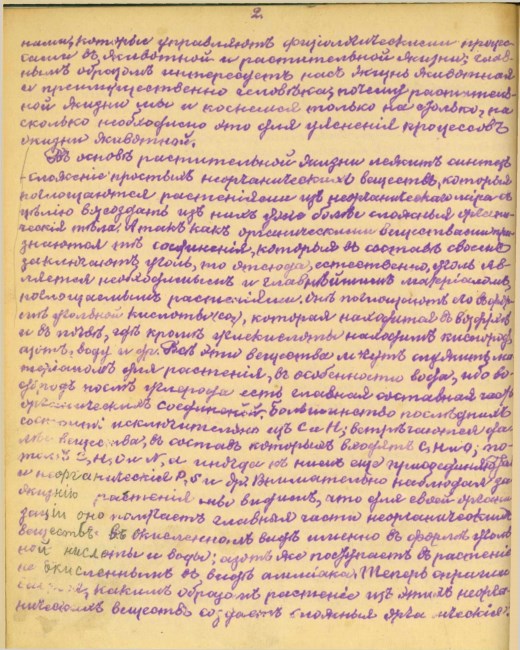 2.
нами, которые управляютъ физіологическими процес-
сами въ животной и растительной жизни; глав-
нымъ образомъ интересуетъ насъ жизнь животная
и преимущественно человѣка; почему раститель-
ной жизни мы и коснемся только на столько, на
сколько необходимо это для уясненія процессовъ
жизни животной.
Въ основѣ растительной жизни лежитъ синтезъ
- сложеніе простыхъ неорганическихъ веществъ, которыя
поглощаются растеніями изъ неорганическаго міра съ
цѣлію возсоздать изъ нихъ болѣе сложныя органи-
ческія тѣла. А такъ какъ органическими веществами при-
знаются тѣ соединенія, которыя въ составѣ своемъ
заключаютъ уголь, то отсюда, естественно, уголь яв-
ляется необходимымъ и главнѣйшимъ матеріаломъ,
поглощаемымъ растеніями. Онѣ поглощаютъ его въ фор-
мѣ угольной кислоты (CO₂), которая находится въ воздухѣ
и въ почвѣ, гдѣ кромѣ углекислоты находимъ кислородъ,
азотъ, воду и др. Всѣ эти вещества могутъ служить ма-
теріаломъ для растенія, въ особенности вода, ибо во-
дородъ послѣ углерода есть главная составная часть
органическихъ соединеній; большинство послѣднихъ
состоитъ исключительно изъ C и H; встрѣчаются да-
лѣе вещества, въ составъ которыхъ входятъ C, H и O; по-
томъ C, H, O и N, и иногда къ нимъ еще присоединяются
и неорганическія P, S и др. Внимательно наблюдая за
жизнію растенія мы видимъ, что для своей органи-
заціи оно получаетъ главныя части неорганическихъ
веществъ въ окисленномъ видѣ именно въ формѣ уголь-
ной кислоты и воды; азотъ же поступаетъ въ растеніе
не окисленнымъ въ видѣ амміака. Теперь спраши-
вается, какимъ образомъ растеніе изъ этихъ неорга-
ническихъ веществъ создаетъ сложныя органическія?